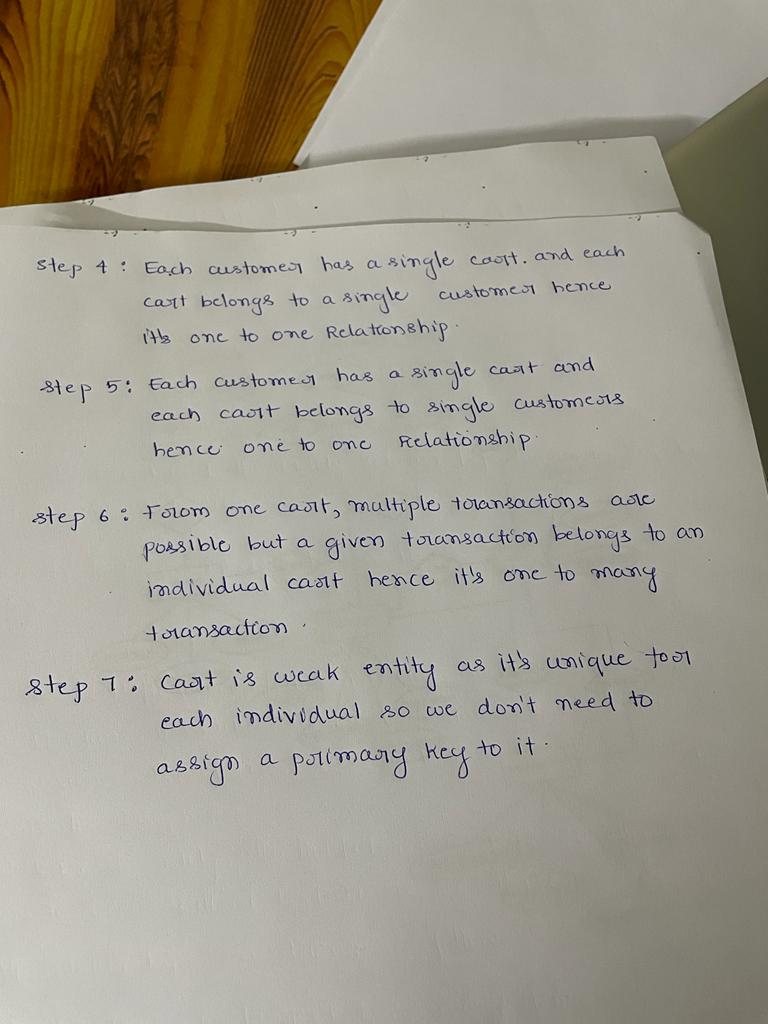 Step 4 : Each customer has a single cart. and each
cart belongs to a single customer hence
it's one to one Relationship.
Step 5 : Each customer has a single cart and
each cart belongs to single customers
hence one to one Relationship.
Step 6 : From one cart, multiple transactions are
possible but a given transaction belongs to an
individual cart hence it's one to many
transaction.
Step 7 : Cart is weak entity as it's unique for
each individual so we don't need to
assign a primary key to it.